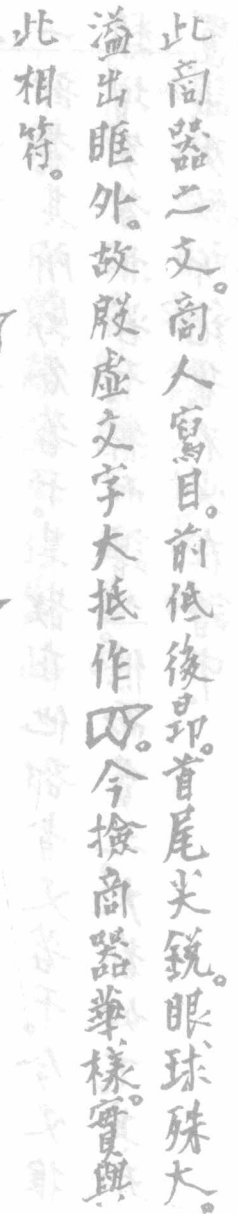 此商器之文。商人寫目。前低後昂。首尾尖銳。眼球殊大。
溢出眶外。故殷虛文字大抵作。今撿商器華樣。實與
此相符。